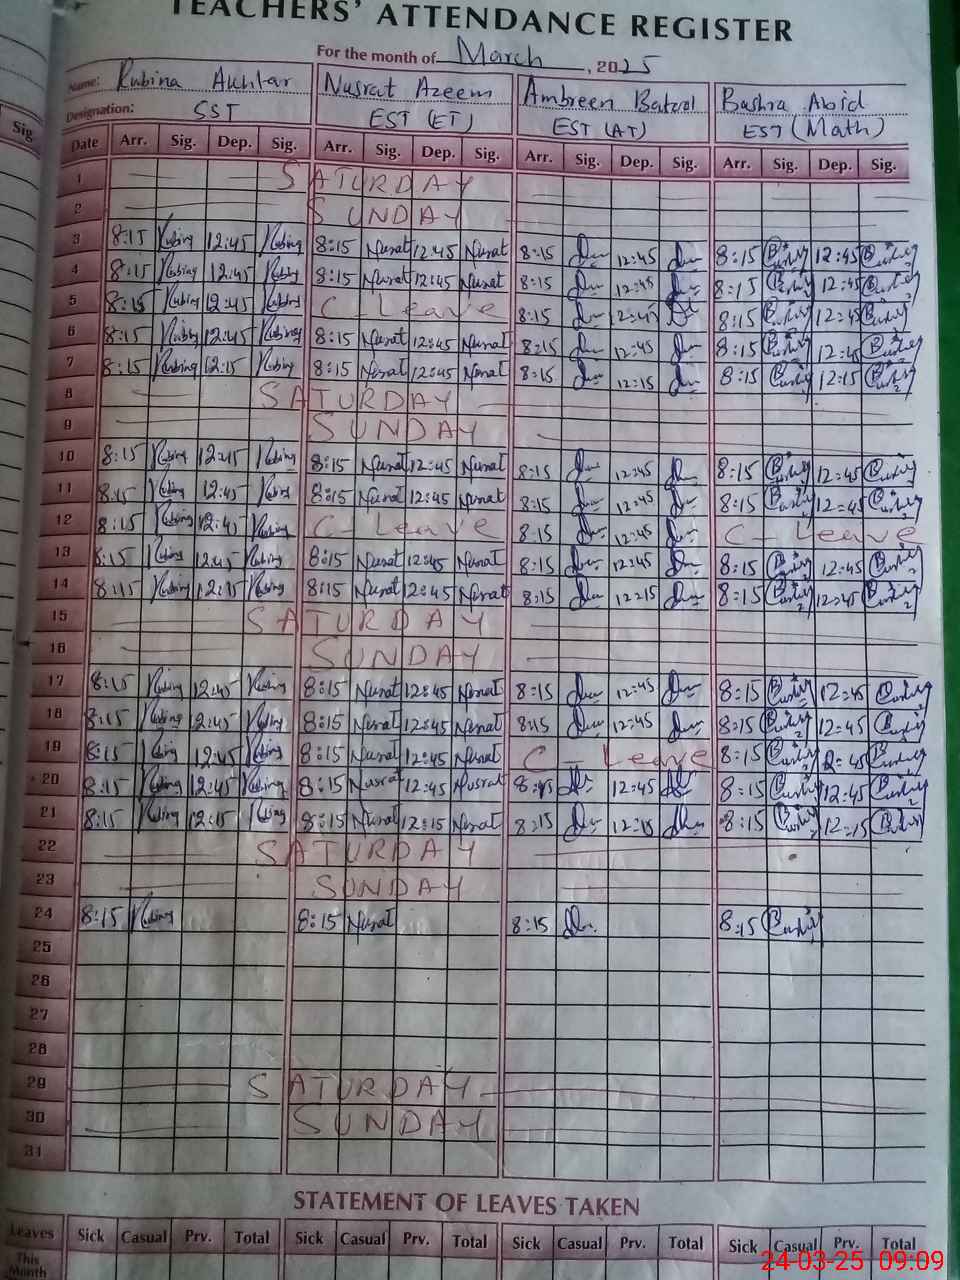 TEACHERS' ATTENDANCE REGISTER
For the month of March, 2025
Name: Rubina Akhtar Nusrat Azeem Ambreen Batool Bushra Abid
Designation: SST EST (ET) EST (AT) EST (Math)
Sig.
Date Arr. Sig. Dep. Sig. Arr. Sig. Dep. Sig. Arr. Sig. Dep. Sig. Arr. Sig. Dep. Sig.
1 SATURDAY
2 SUNDAY
3 8:15 Rubina 12:45 Rubina 8:15 Nusrat 12:45 Nusrat 8:15 12:45 8:15 Bushra 12:45 Bushra
4 8:15 Rubina 12:45 Rubina 8:15 Nusrat 12:45 Nusrat 8:15 12:45 8:15 Bushra 12:45 Bushra
5 8:15 Rubina 12:45 Rubina C-Leave 8:15 12:45 8:15 Bushra 12:45 Bushra
6 8:15 Rubina 12:45 Rubina 8:15 Nusrat 12:45 Nusrat 8:15 12:45 8:15 Bushra 12:45 Bushra
7 8:15 Rubina 12:15 Rubina 8:15 Nusrat 12:45 Nusrat 8:15 12:15 8:15 Bushra 12:15 Bushra
8 SATURDAY
9 SUNDAY
10 8:15 Rubina 12:45 Rubina 8:15 Nusrat 12:45 Nusrat 8:15 12:45 8:15 Bushra 12:45 Bushra
11 8:15 Rubina 12:45 Rubina 8:15 Nusrat 12:45 Nusrat 8:15 12:45 8:15 Bushra 12:45 Bushra
12 8:15 Rubina 12:45 Rubina C-Leave 8:15 12:45 C-Leave
13 8:15 Rubina 12:45 Rubina 8:15 Nusrat 12:45 Nusrat 8:15 12:45 8:15 Bushra 12:45 Bushra
14 8:15 Rubina 12:15 Rubina 8:15 Nusrat 12:45 Nusrat 8:15 12:15 8:15 Bushra 12:45 Bushra
15 SATURDAY
16 SUNDAY
17 8:15 Rubina 12:45 Rubina 8:15 Nusrat 12:45 Nusrat 8:15 12:45 8:15 Bushra 12:45 Bushra
18 8:15 Rubina 12:45 Rubina 8:15 Nusrat 12:45 Nusrat 8:15 12:45 8:15 Bushra 12:45 Bushra
19 8:15 Rubina 12:45 Rubina 8:15 Nusrat 12:45 Nusrat C-Leave 8:15 Bushra 12:45 Bushra
20 8:15 Rubina 12:45 Rubina 8:15 Nusrat 12:45 Nusrat 8:15 12:45 8:15 Bushra 12:45 Bushra
21 8:15 Rubina 12:15 Rubina 8:15 Nusrat 12:15 Nusrat 8:15 12:15 8:15 Bushra 12:15 Bushra
22 SATURDAY
23 SUNDAY
24 8:15 Rubina 8:15 Nusrat 8:15 8:15 Bushra
25
26
27
28
29 SATURDAY
30 SUNDAY
31
STATEMENT OF LEAVES TAKEN
Leaves Sick Casual Prv. Total Sick Casual Prv. Total Sick Casual Prv. Total Sick Casual Prv. Total
This Month
24-03-25 09:09